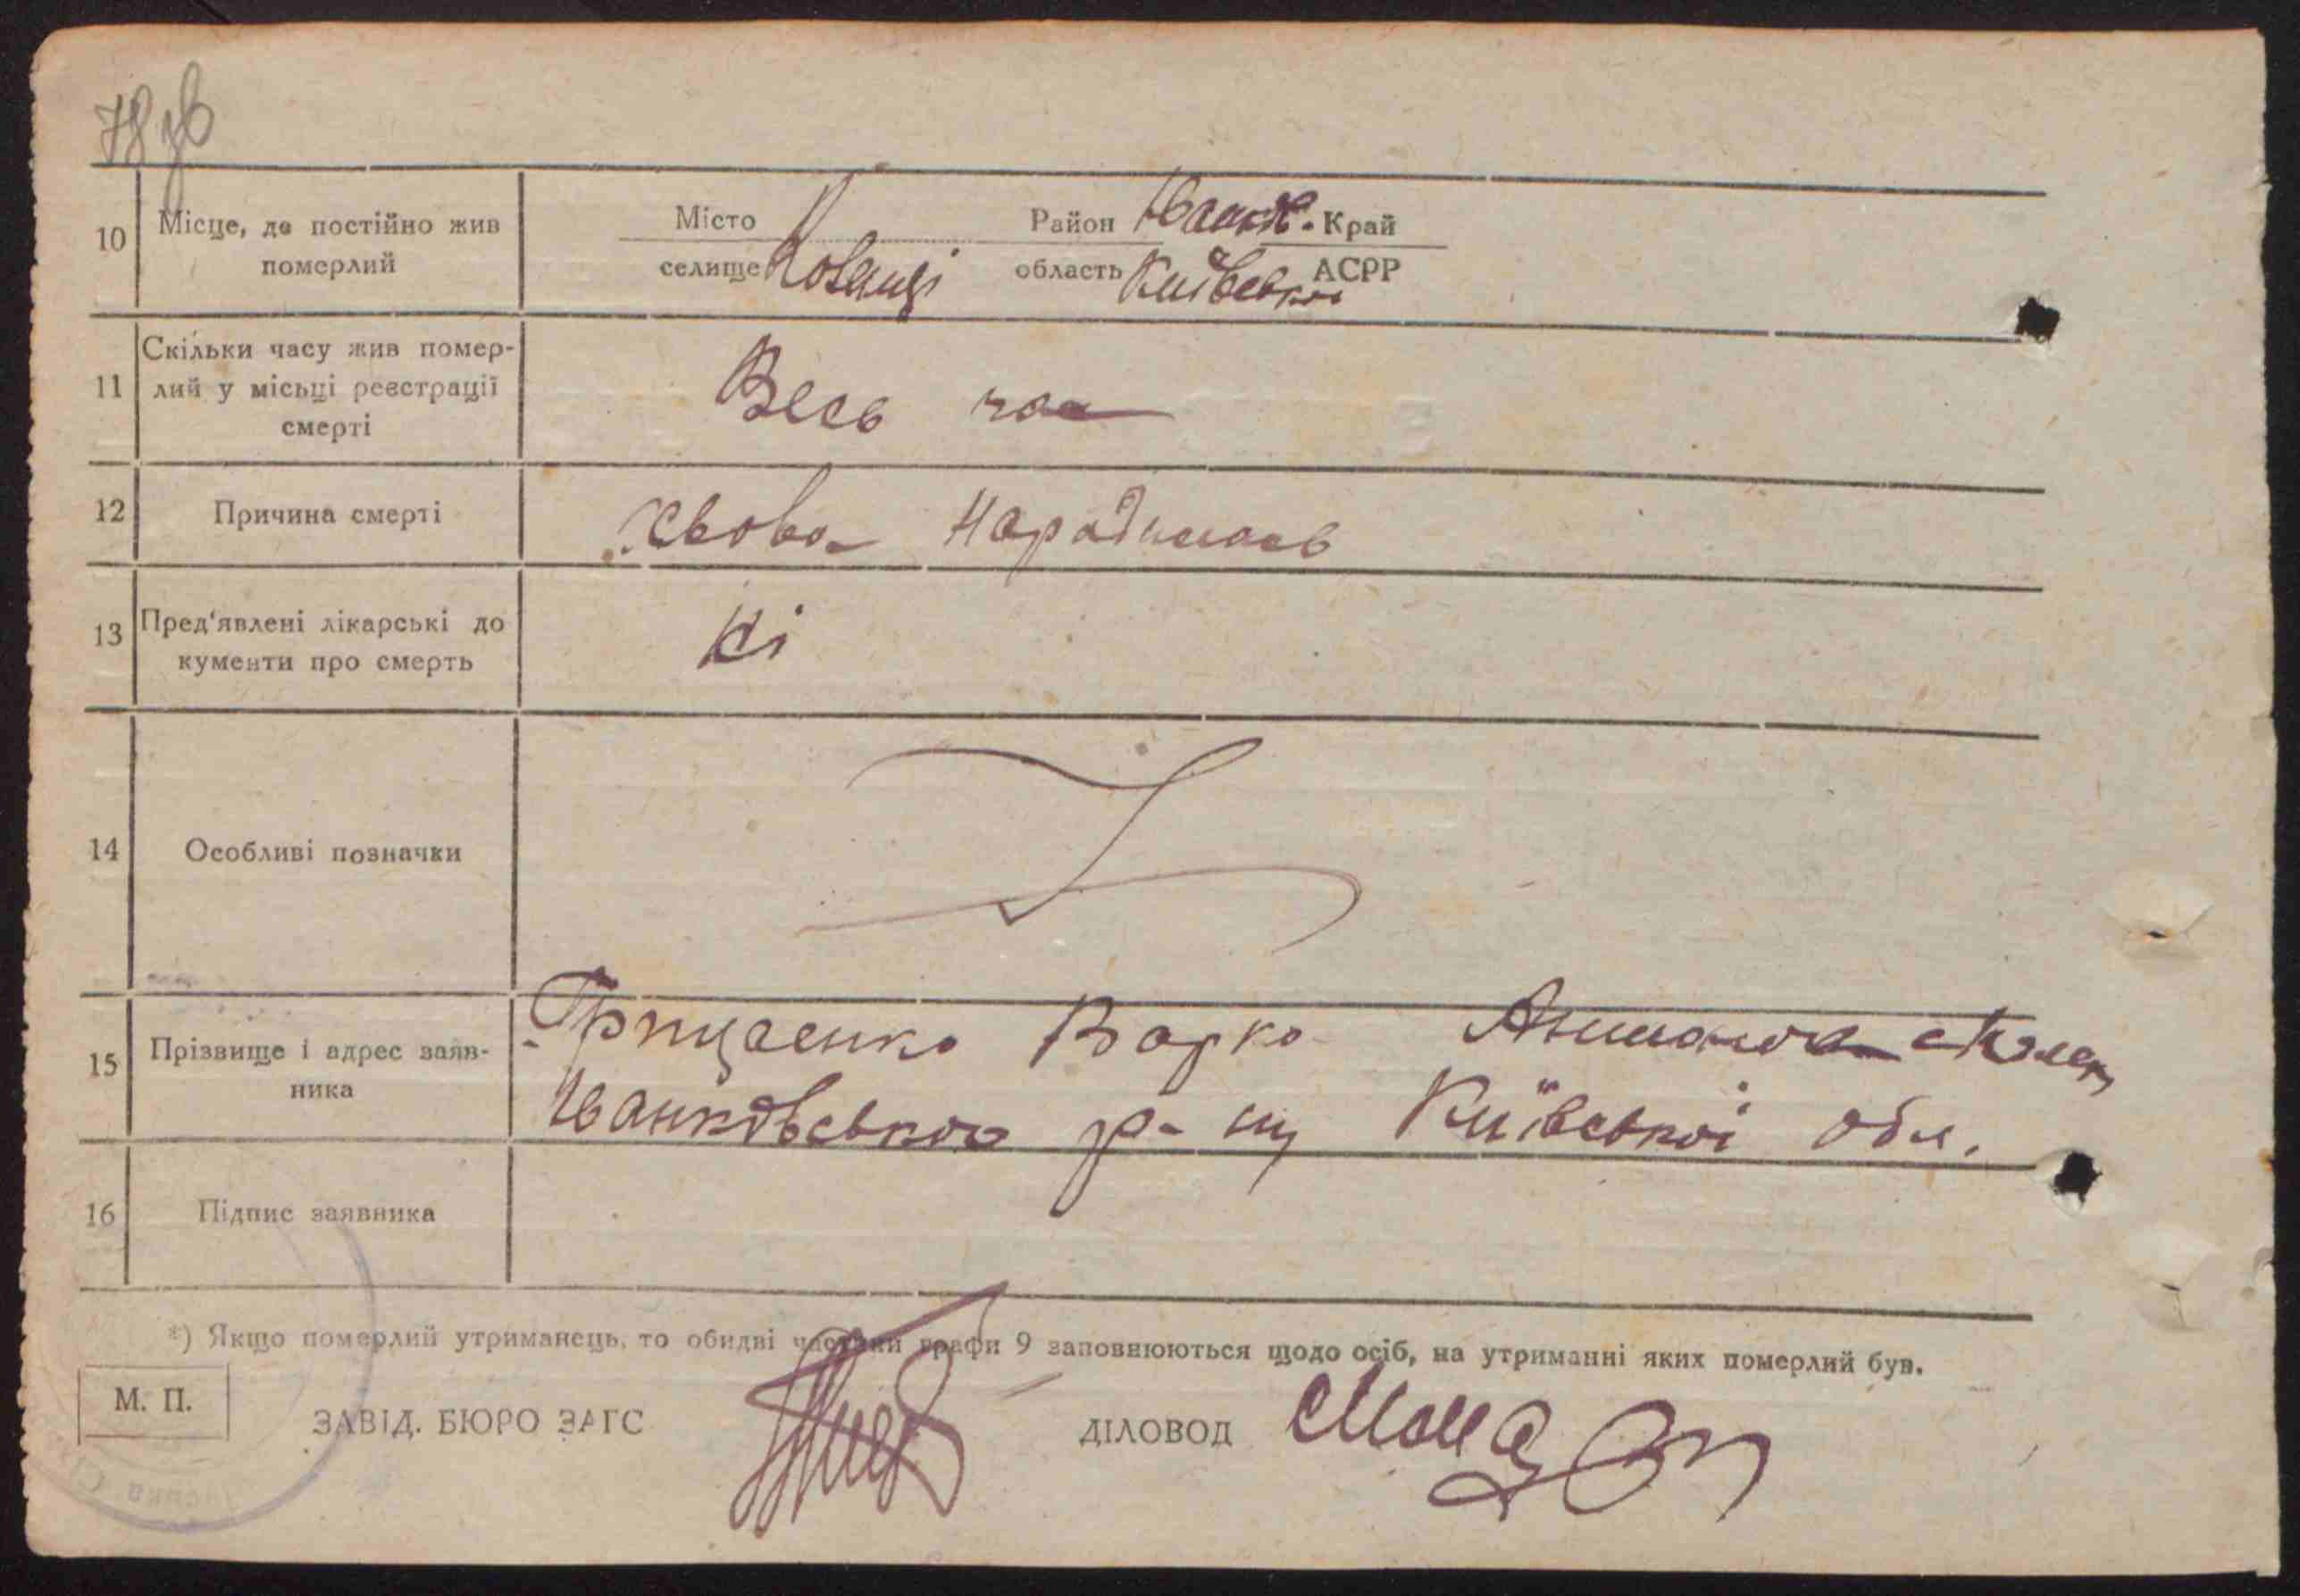 78 зв
10 Місце, де постійно жив
померлий
Місто
селище Коленці
Район Іванк.
область Київської
Край
АСРР
11 Скільки часу жив помер-
лий у місьці реєстрації
смерті
Весь час
12 Причина смерті
хвора Народилась
13 Пред'явлені лікарські до
кументи про смерть
Ні
14 Особливі позначки
15 Прізвище і адрес заяв-
ника
Грищенко Варка
Іванковського р-ну Київської обл.
16 Підпис заявника
*) Якщо померлий утриманець, то обидві частини графи 9 заповнюються щодо осіб, на утриманні яких померлий був.
М. П.
ЗАВІД. БЮРО ЗАГС
ДІЛОВОД